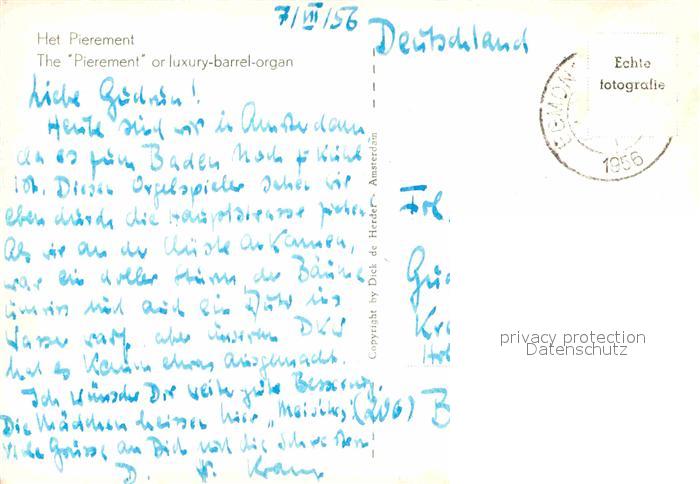 7/VIII/56
Het Pierement
The "Pierement" or luxury-barrel-organ
Deutschland
Echte
fotografie
EGMOND
1956
Liebe Gudrun!
Heute sind wir in Amsterdam
da es zum Baden noch zu kühl
ist. Diesen Orgelspieler sahen wir
eben durch die Hauptstrasse ziehen
Als wir an der Küste ankamen,
war ein doller Sturm, der Bäume
umriss und auch ein Auto ins
Wasser warf, aber unserem DKW
hat es kaum etwas ausgemacht.
Ich wünsche Dir weiter gute Besserung.
Die Mädchen heissen hier "Meisjes"
Viele Grüsse an Dich und die Schwestern
D. H.
Copyright by Dick de Herder - Amsterdam
Frl.
Gu
Kr
(20b) B
privacy protection
Datenschutz